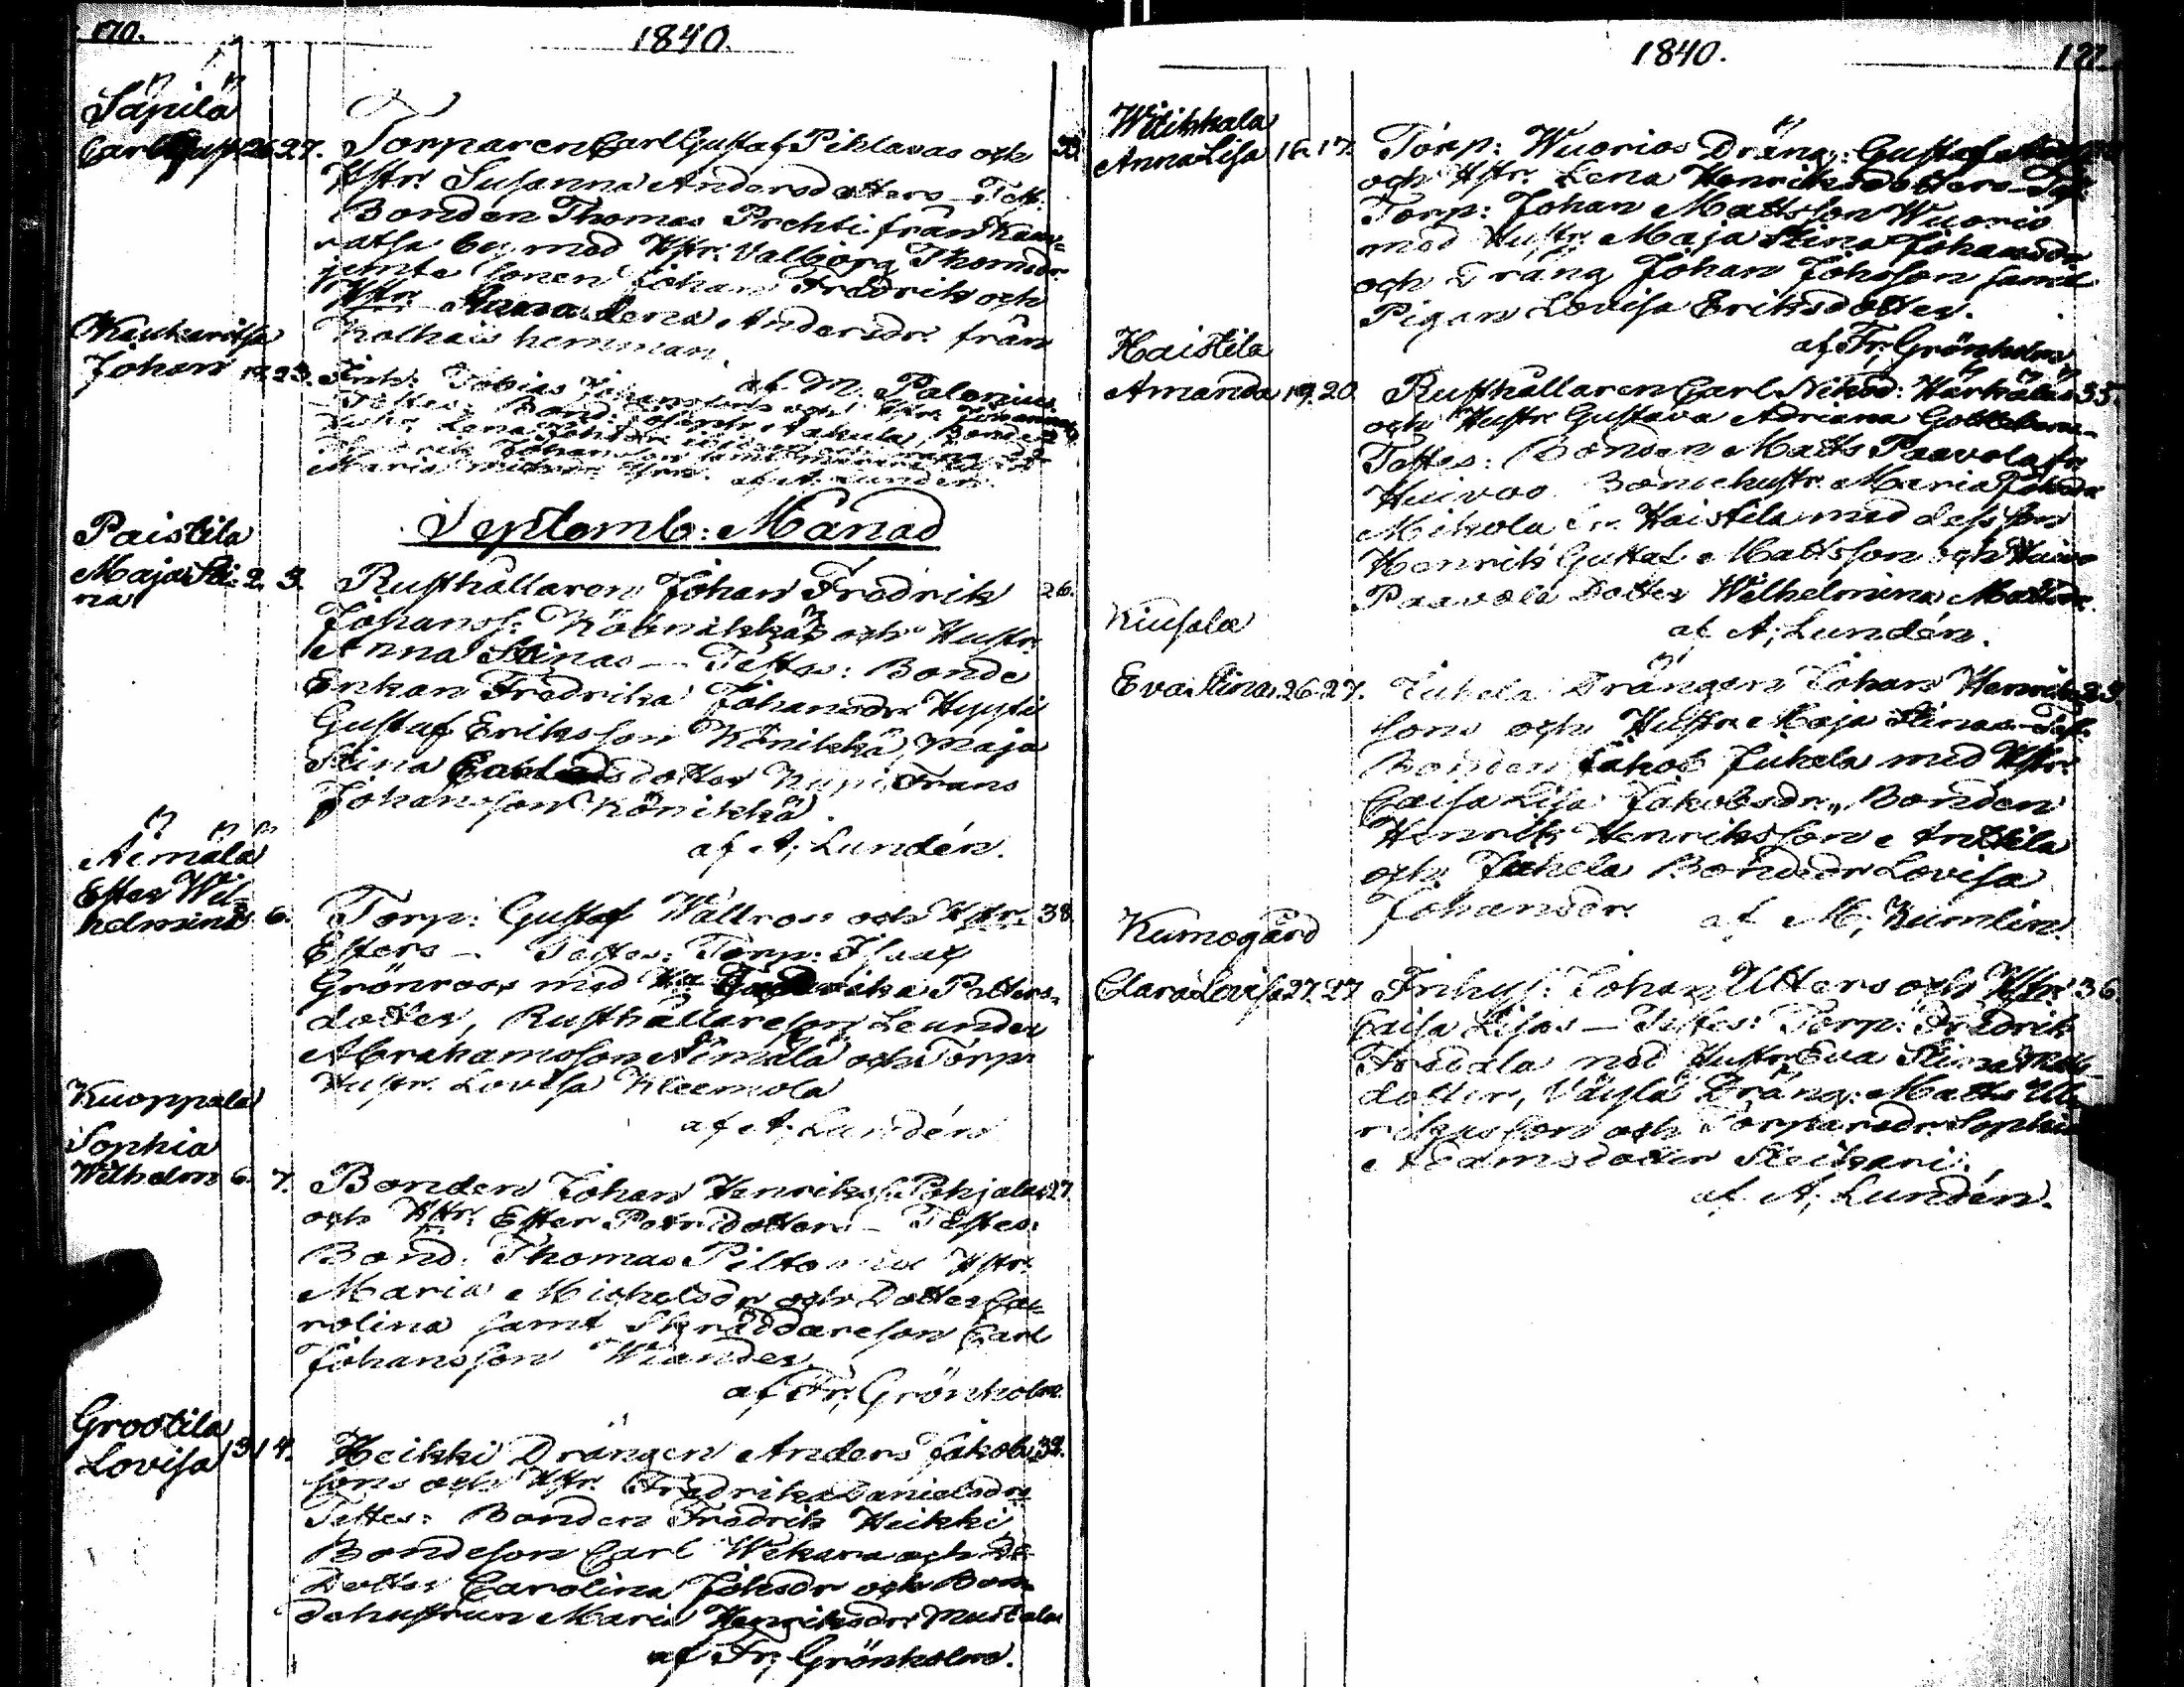 170.
1840.
Säpilä
Carl Gust. 26 27. Torparen Carl Gustaf Pihlavas och 33.
Hstr. Susanna Andersdotters Test.
Bonden Thomas Prehti från Kau-
vatsa by med Hstr. Valborg Thomsdr.
jemte sonen Johan Fredrik och
Hstr. Anna Lena Andersdr. från
Kolhais hemman.
af M. Polonius.
Kaukaritsa
Johan 19. 23. Inh: Tobias Johanssons och Hstr.
Testes: Bond:
Hustr. Lena
Fredrik Johansson samt
Maria af A. Lundén.
Septemb: Månad
Paistila
Maja Sti- 2. 3. Rusthållaren Johan Fredrik 26.
na
Johanss: Köönikkäs och Hustr.
Anna Stinas — Testes: Bonde
Enkan Fredrika Johansdr. Hyyti
Gustaf Eriksson Könikkä, Maja
Stina dotter Kupi Frans
Johansson Könikkä.
af A, Lundén.
Äimälä
Ester Wil-
helmina 6. Torp: Gustaf Wallros och Hstr. 38.
Esters — Testes: Torp: Isaac
Grönroos med Ha Fredrika Petters-
dotter, Rusthållareson Leander
Abrahamsson Äimälä och Torp:
Hustr. Lovisa Kleemola
af A, Lundén
Kuoppala
Sophia
Wilhelm 6. 7. Bonden Johan Henrikss. Pohjalas 27.
och Hstr. Ester Petridotters — Testes:
Bond: Thomas Pilto med Hstr.
Maria Michelsdr. och Dotter Ca-
rolina samt Skräddareson Carl
Johansson Wiander
af Fr, Grönholm.
Grootila
Lovisa 13. 14. Heikki Drängen Anders Jakobs 32.
sons och Hstr. Fredrika Danielsdrs
Testes: Bonden Fredrik Heikki
Bondeson Carl Wekara och
Dotter Carolina Johsdr och Bon-
dehustrun Maria Henriksdr. Mustala
af Fr, Grönholm.
1840.
171.
Witikkala
Anna Lisa 16. 17. Torp: Wuorios Dräng: Gustaf
och Hstr. Lena Henriksdotters
Torp: Johan Mattsson Wuorio
med Hustr. Maja Stina Johansdr.
och Dräng Johan Johsson samt
Pigan Lovisa Eriksdotter.
af Fr, Grönholm
Haistila
Amanda 19. 20. Rusthållaren Carl Nikod: Härkäläs 35.
och Hustr. Gustava Adriana
Testes: Bonden Matts Paavola fr.
Huivoo Bondehustr. Maria Johsdr
Mikola fr. Haistila med dess son
Henrik Gustaf Mattsson och
Paavola Dotter Wilhelmina Mattsdr.
af A, Lundén.
Kiusala
Eva Stina 26. 27. Juhela Drängen Johan Henriks 23.
sons och Hustr. Maja Stinas
Bonden Jakob Juhela med Hstr.
Caisa Lisa Jakobsdr, Bonden
Henrik Henriksson Anttila
och Juhela Bondedr Lovisa
Johansdr. af M, Kumlin.
Kumogård
Clara Lovisa 27. 27. Inhys: Johan Utters och Hstr. 36.
Caisa Lisas — Testes: Torp: Fredrik
med Hustr. Eva Stina
dotter, Väylä Dräng: Matts Ul-
rikusson och Torparedr. Sophia
Adamsdotter
af A, Lundén.